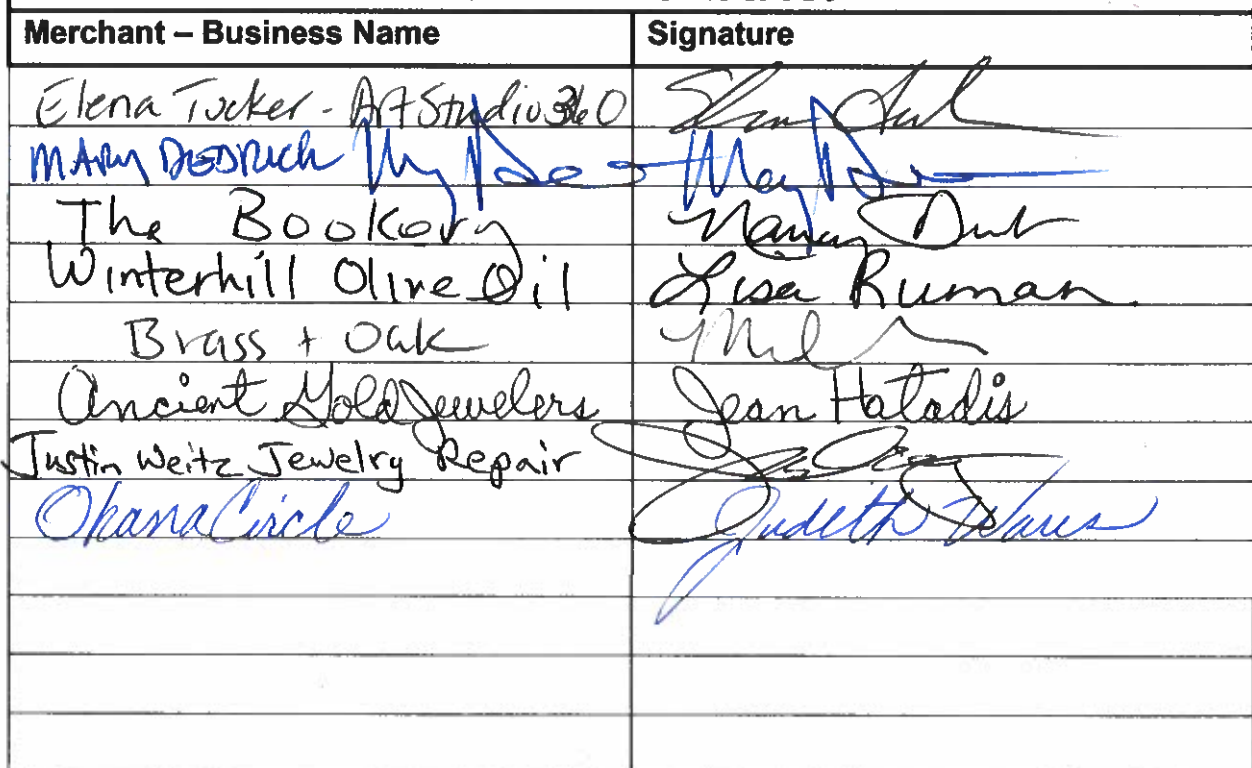 Merchant – Business Name Signature
Elena Tucker - Art Studio 360
MARY DEDRICH
The Bookery Nancy
Winterhill Olive Oil Lisa Ruman
Brass + Oak
Ancient Gold Jewelers Jean Hatadis
Justin Weitz Jewelry Repair
Ohana Circle Judith Wares